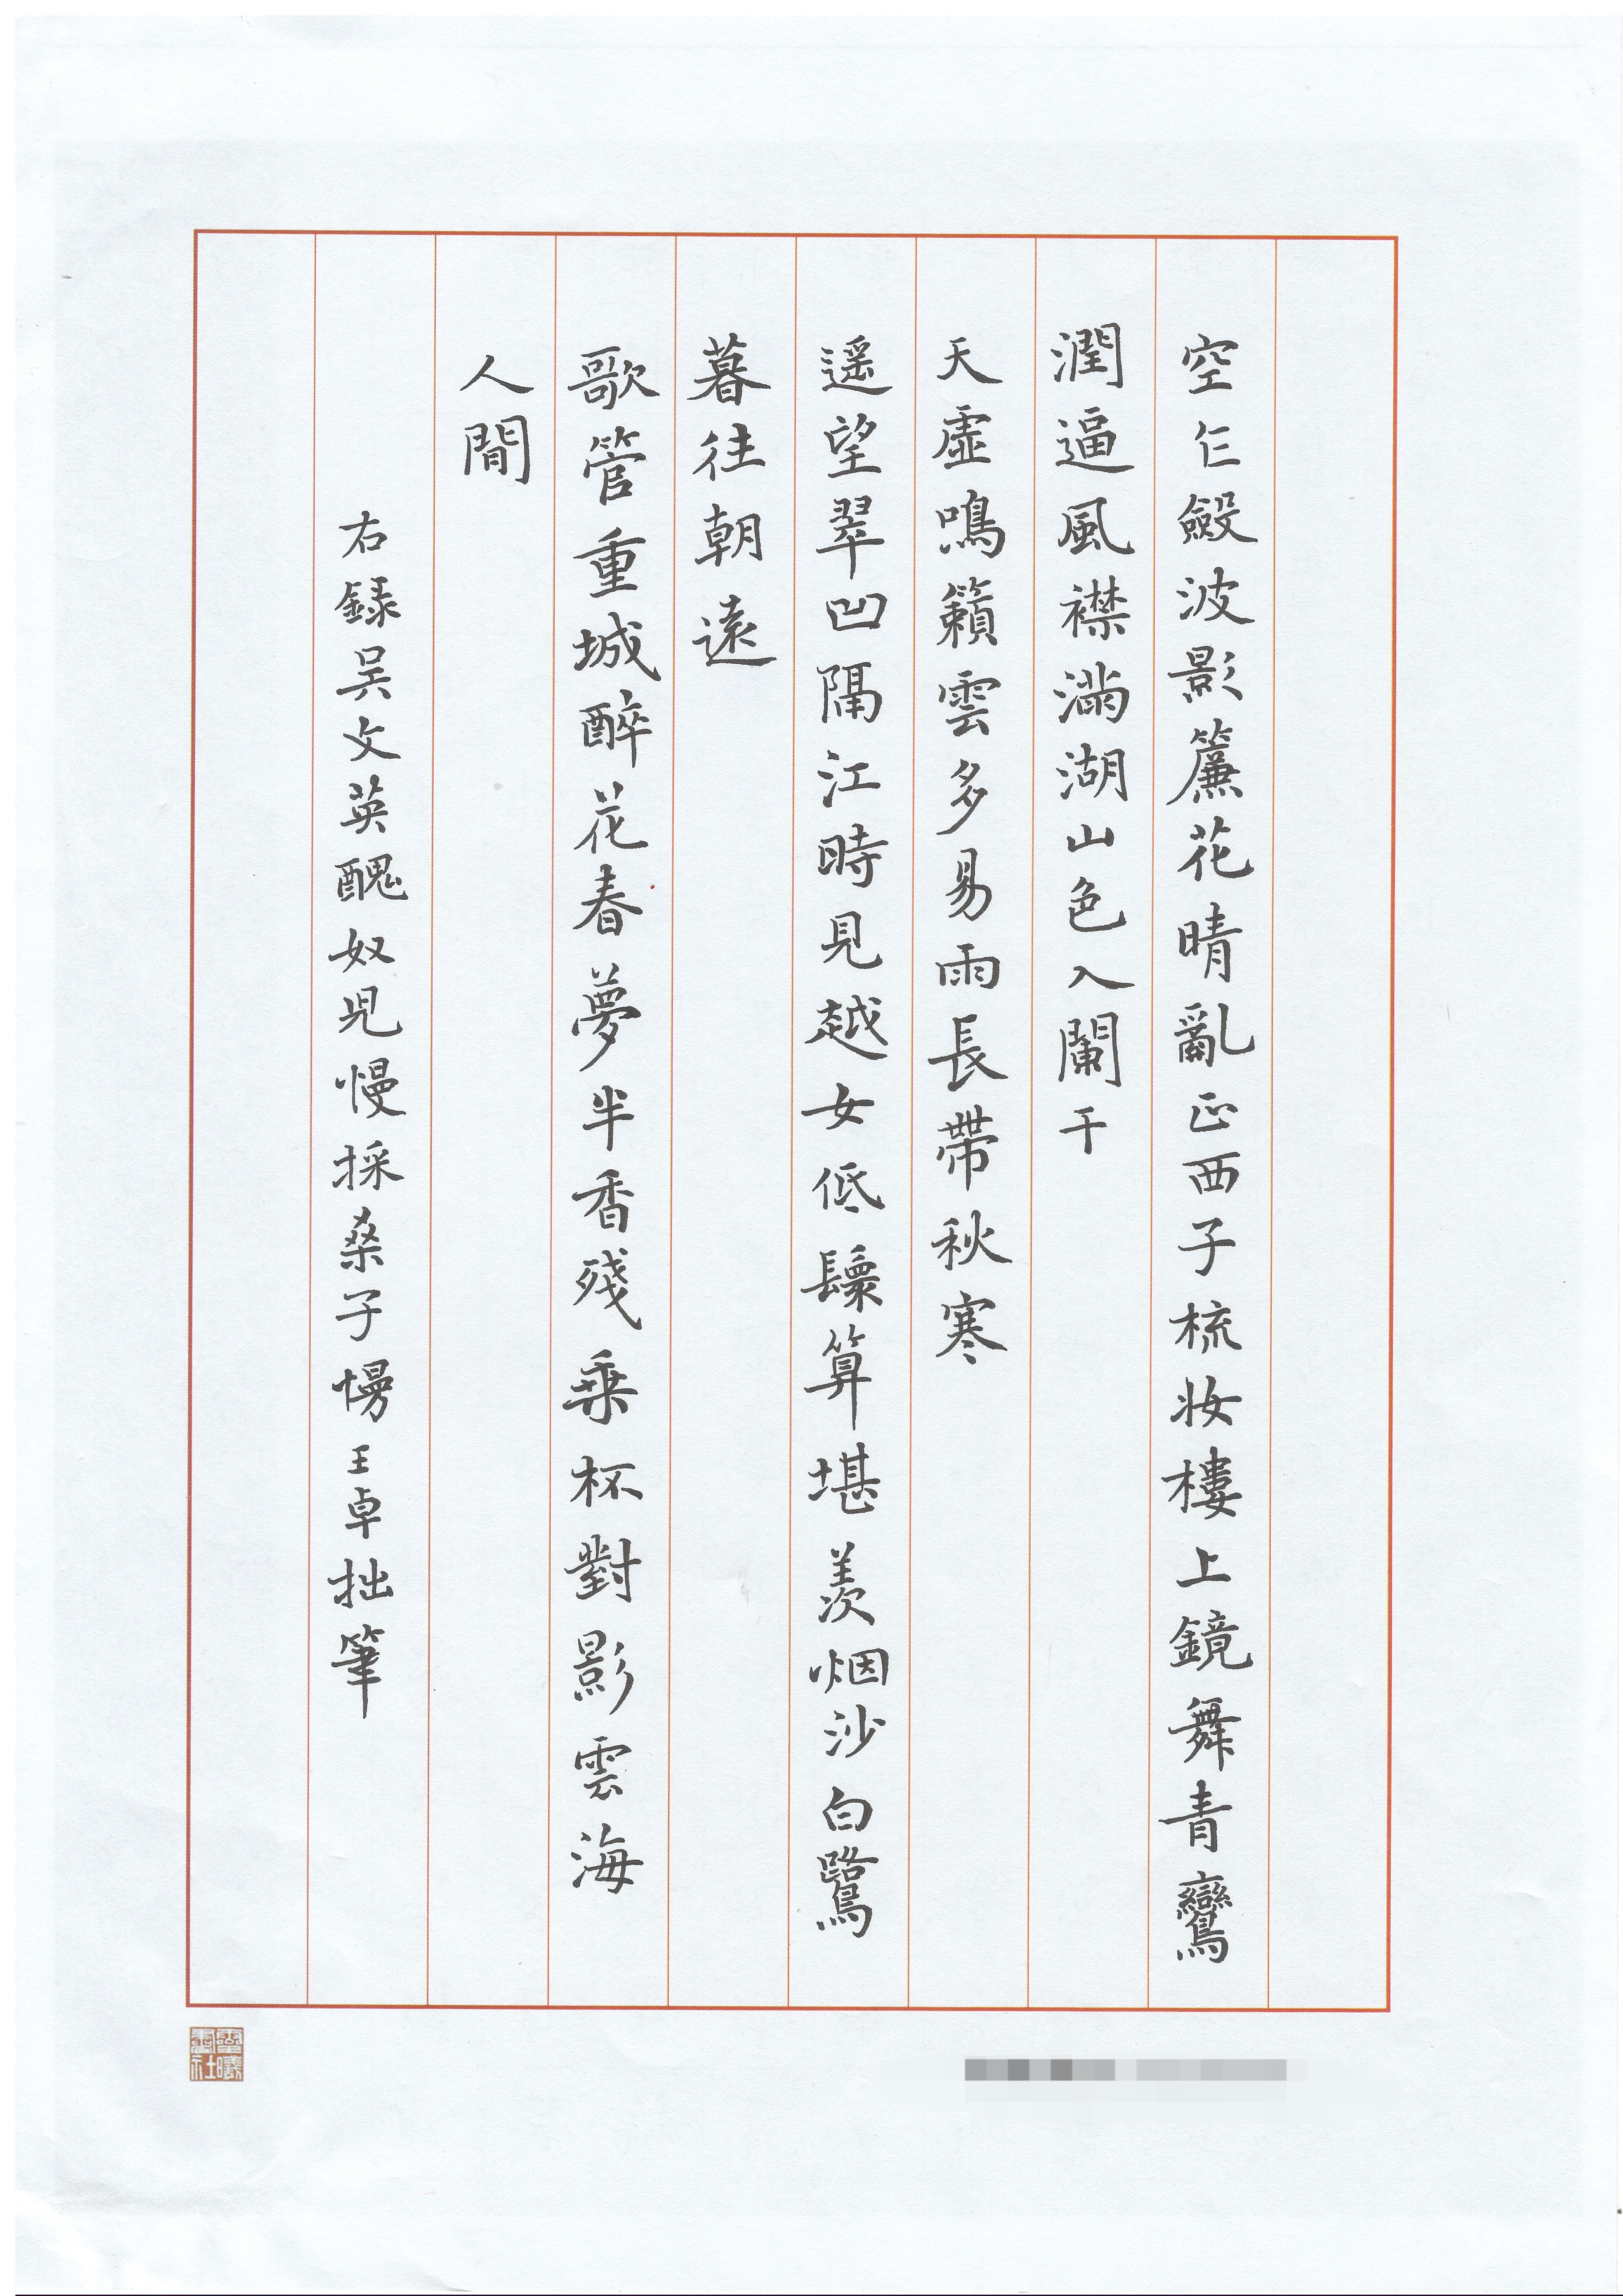 空乍斂波影簾花晴亂正西子梳妆樓上鏡舞青鸞
潤逼風襟滿湖山色入闌干
天虛鳴籟雲多易雨長帶秋寒
遥望翠凹隔江時見越女低鬟算堪羨烟沙白鷺
暮往朝遠
歌管重城醉花春夢半香殘乘杯對影雲海
人間
右録吴文英醜奴児慢採桑子慢王卓拙筆